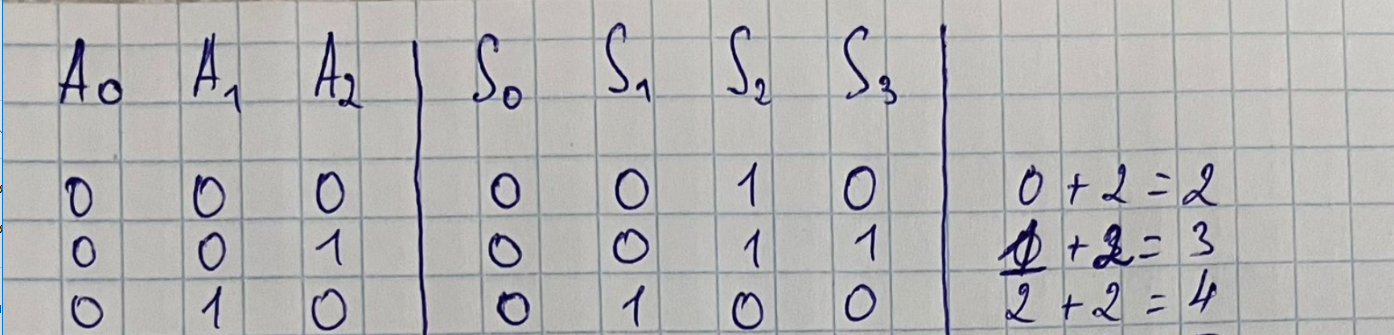 A₀ A₁ A₂ | S₀ S₁ S₂ S₃ |
0 0 0 | 0 0 1 0 | 0 + 2 = 2
0 0 1 | 0 0 1 1 | 1 + 2 = 3
0 1 0 | 0 1 0 0 | 2 + 2 = 4